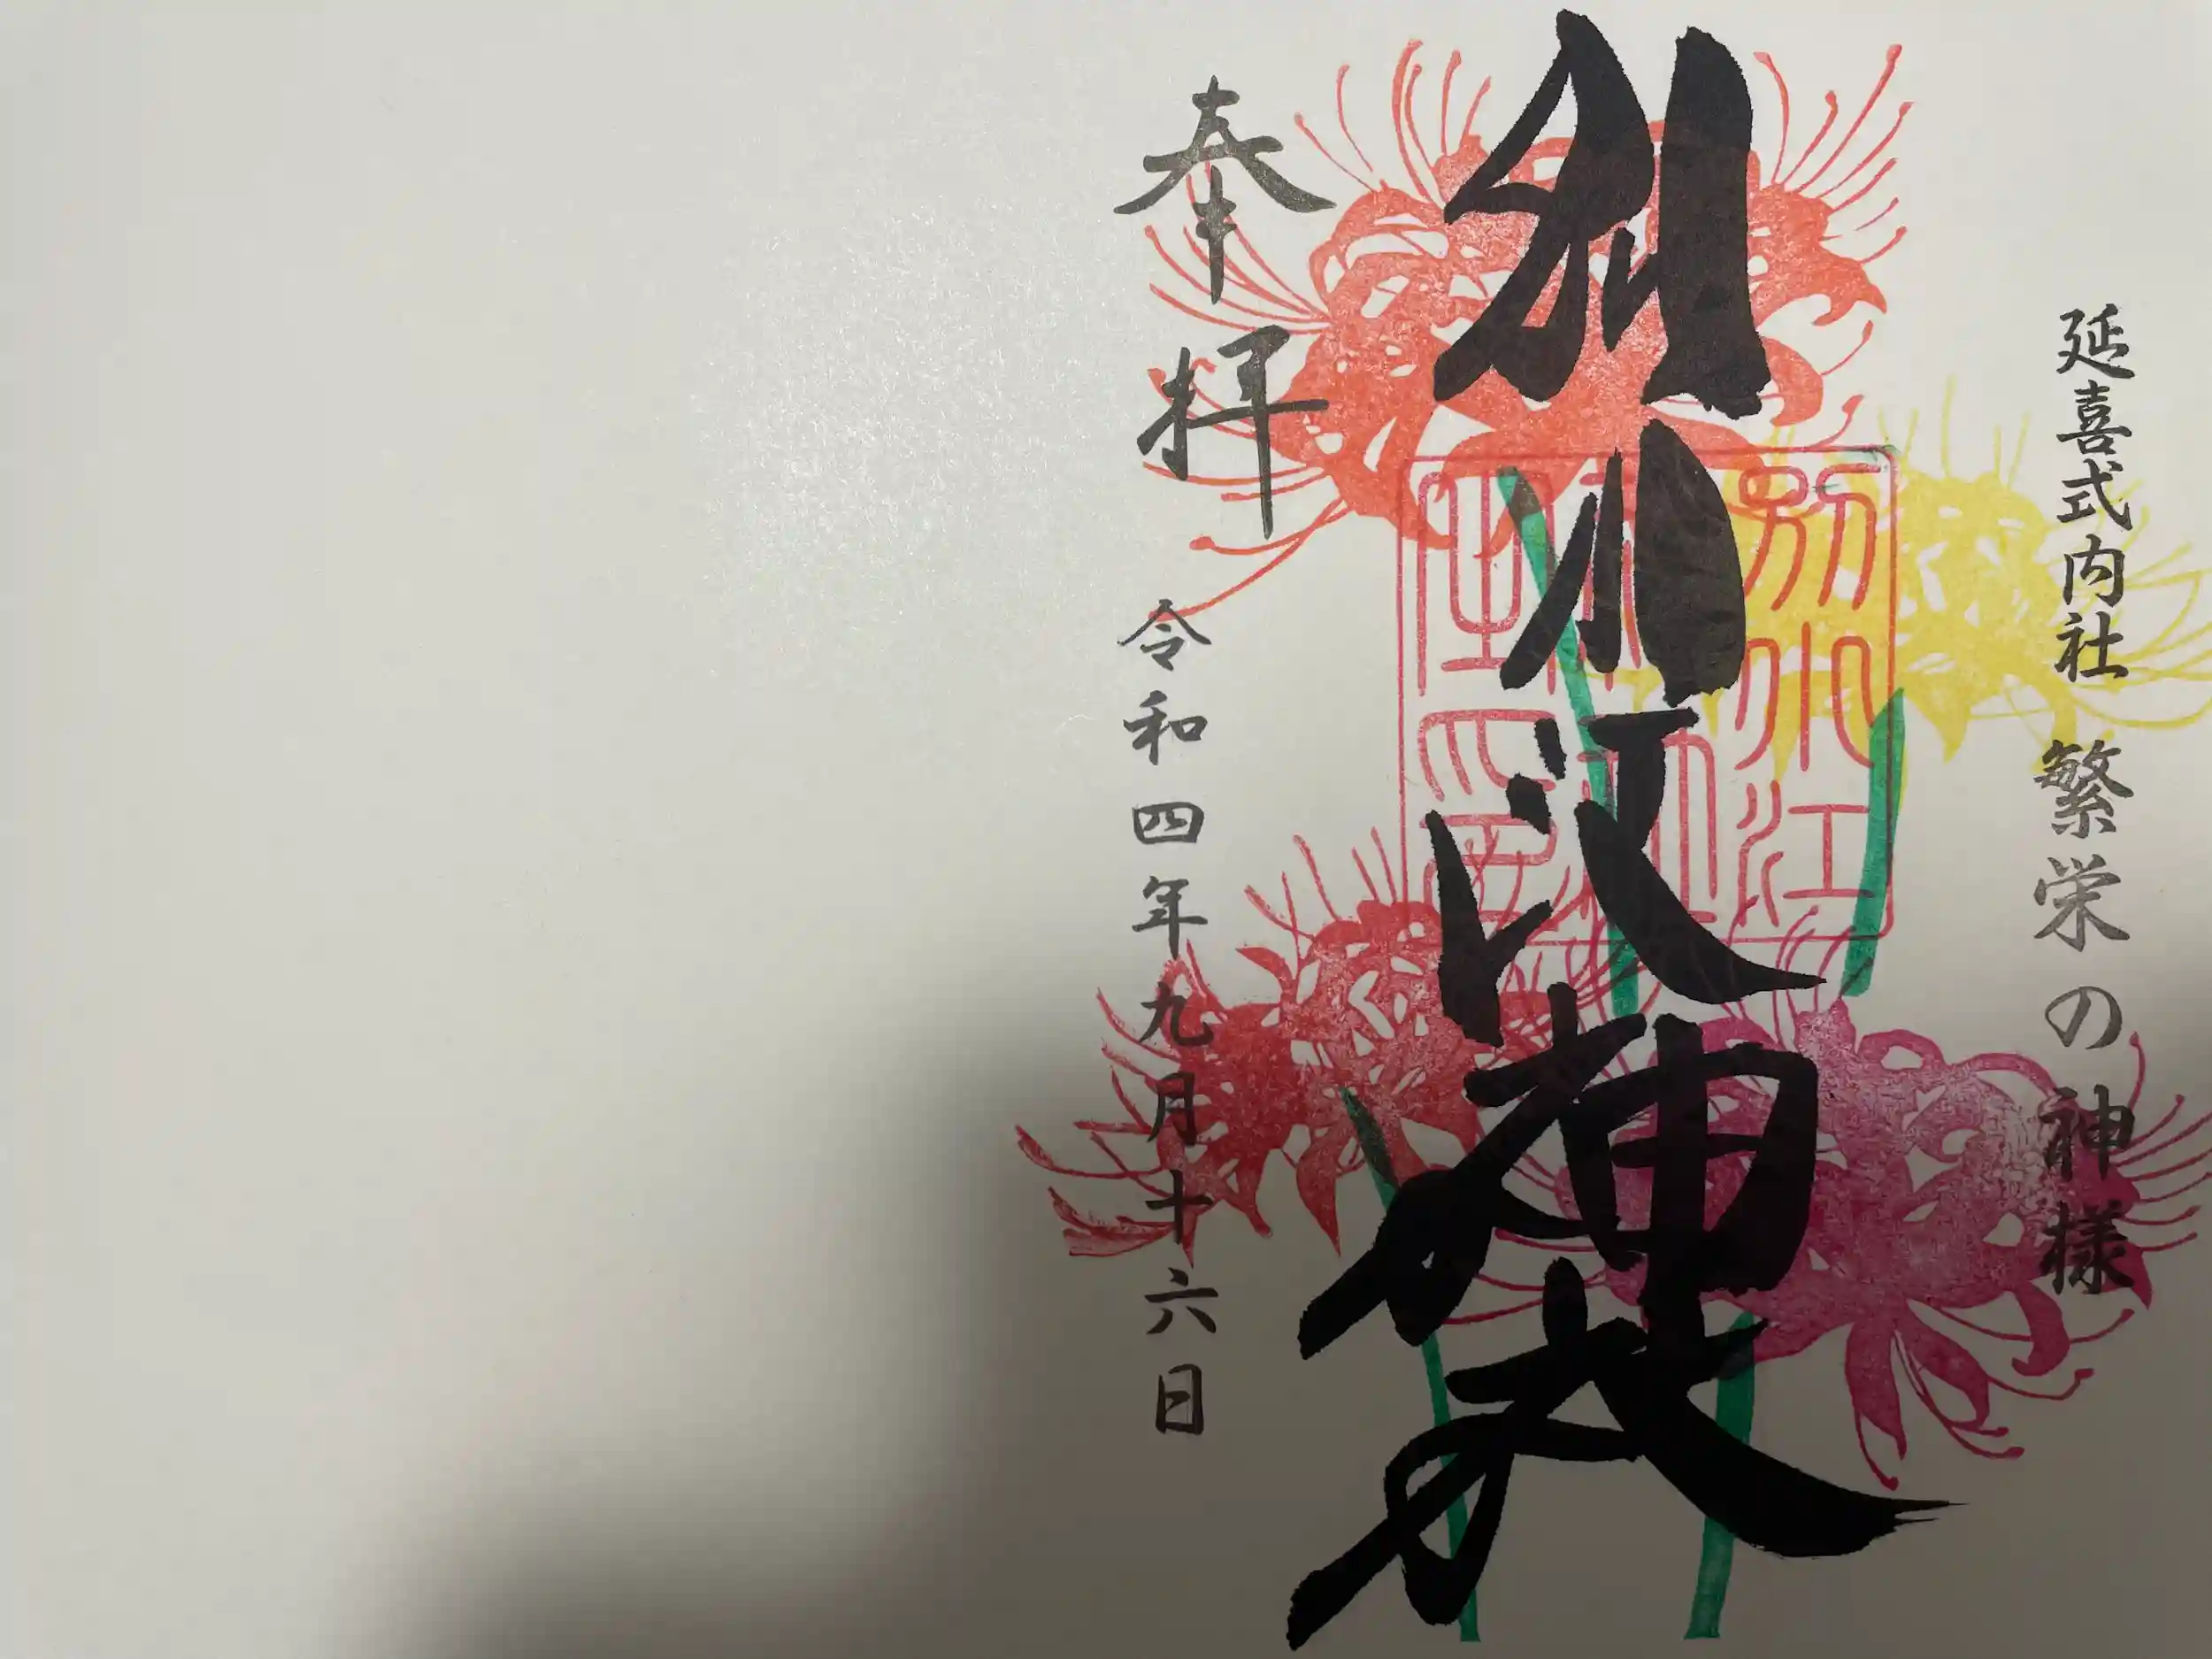 延喜式内社 繁栄の神様
別小江神社
奉拝
令和四年九月十六日
別小江
神社
之印